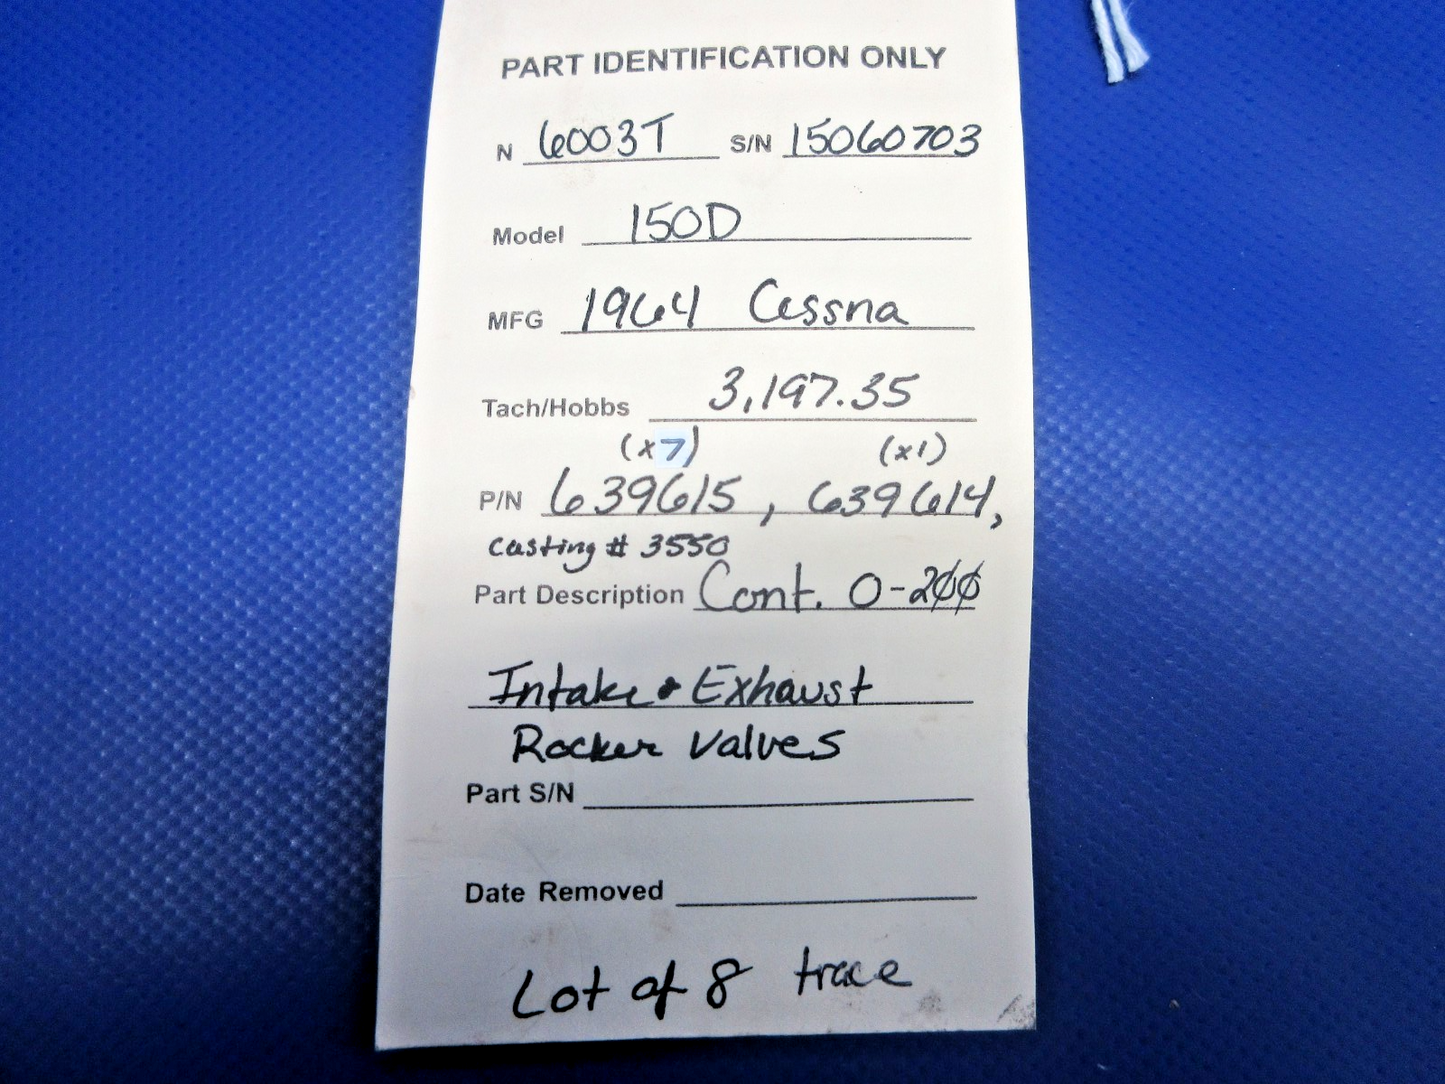 PART IDENTIFICATION ONLY
N 6003T S/N 15060703
Model 150D
MFG 1964 Cessna
Tach/Hobbs 3,197.35
(x7) (x1)
P/N 639615, 639614,
casting # 3550
Part Description Cont. O-200
Intake & Exhaust
Rocker Valves
Part S/N
Date Removed
Lot of 8 trace